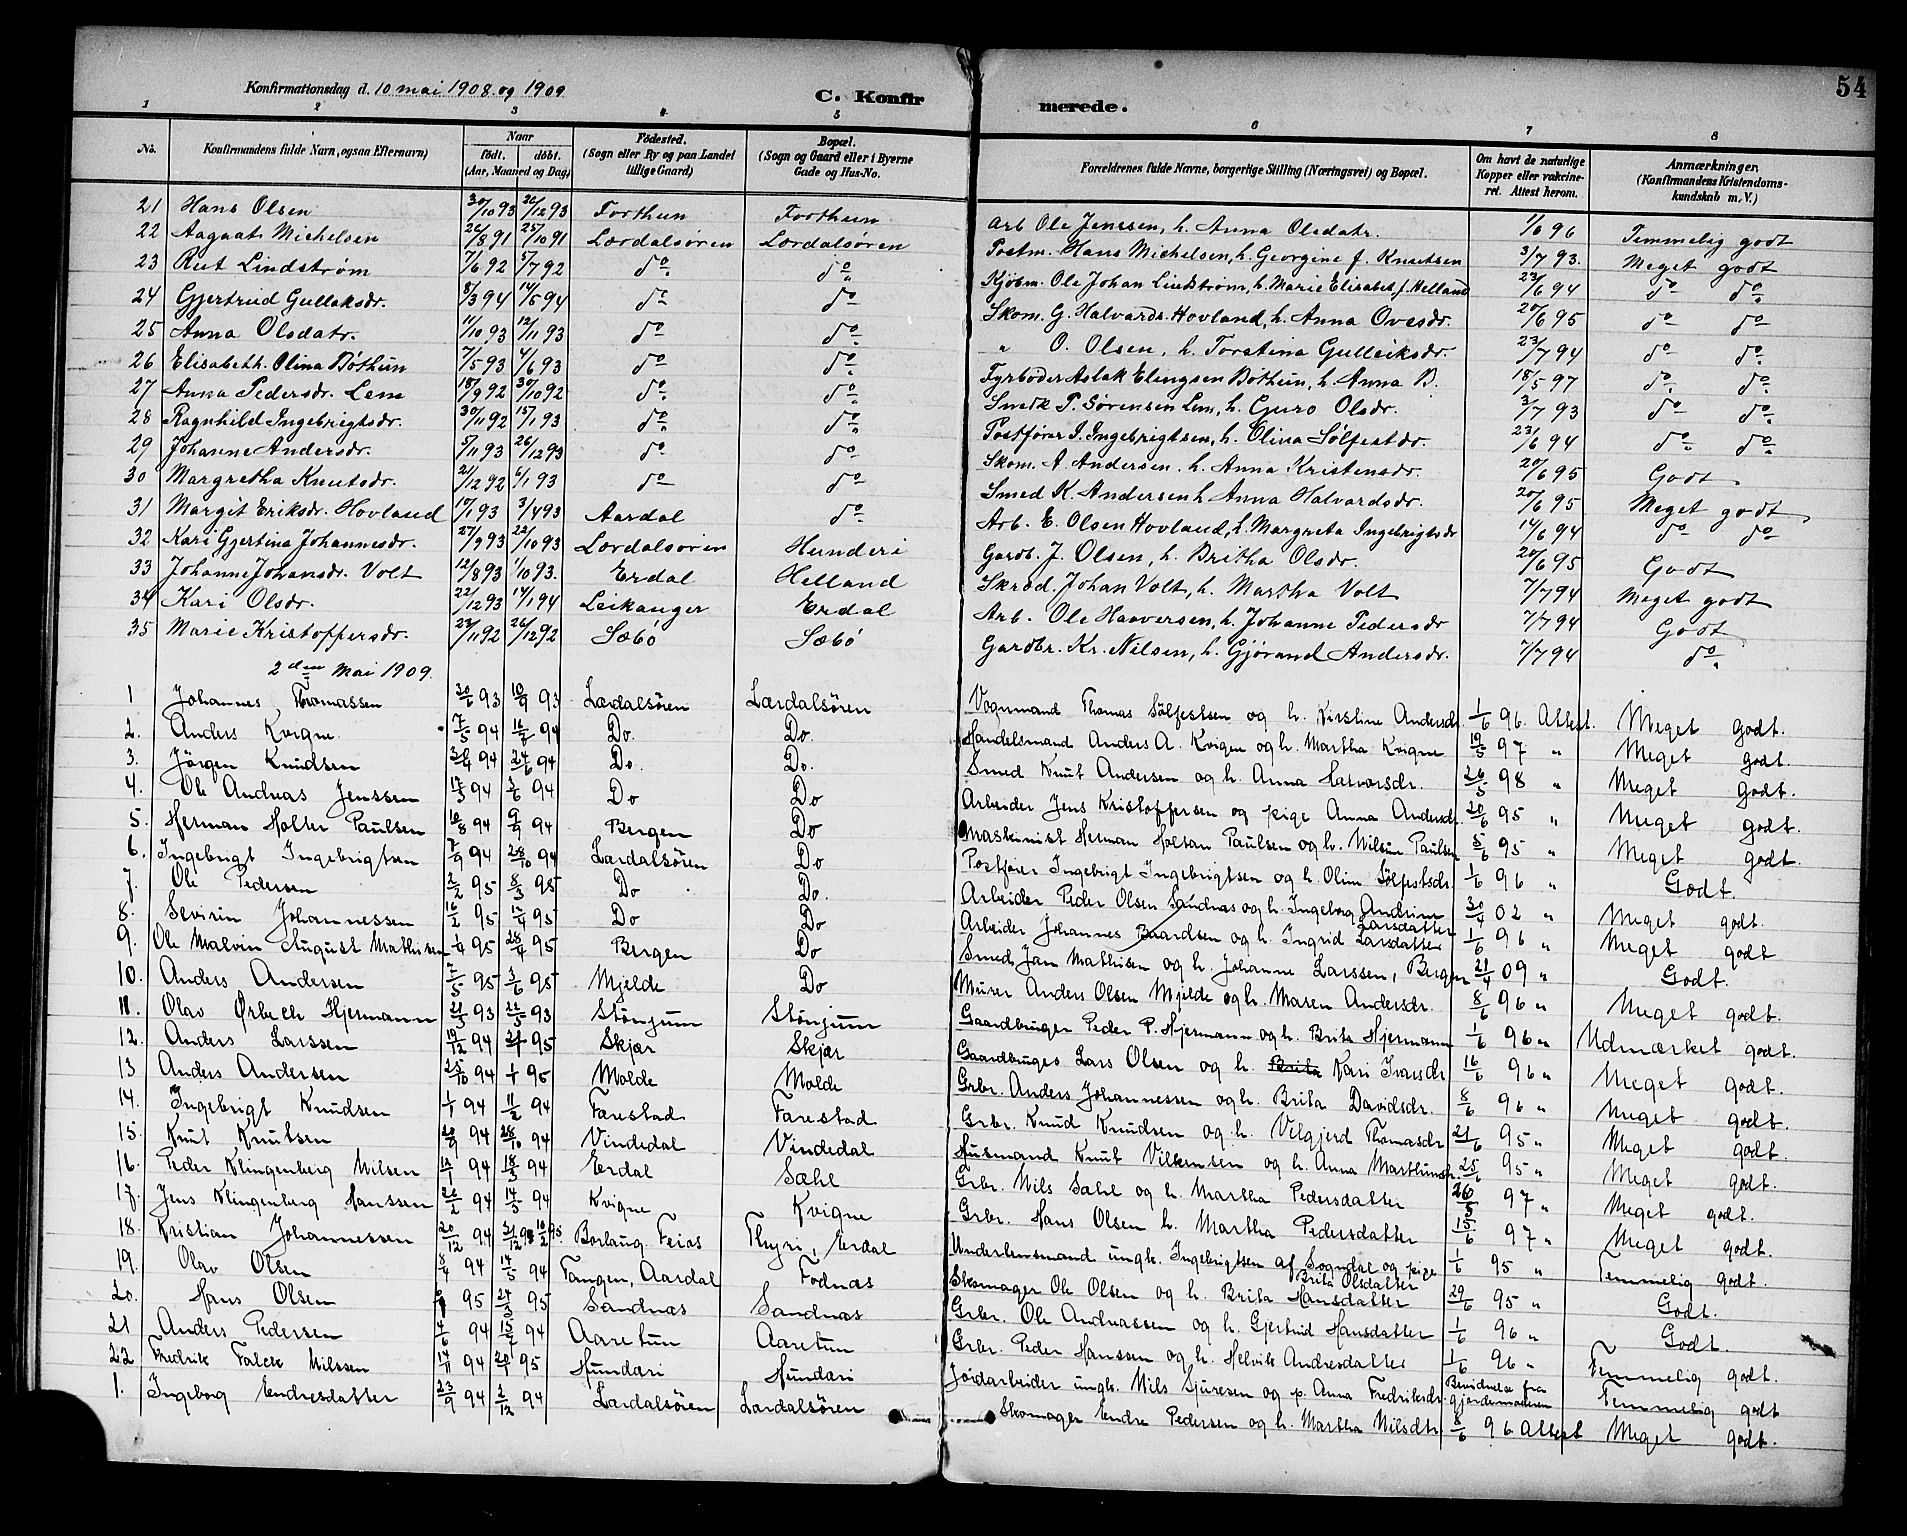 54
Konfirmationsdag d. 10 mai 1908. og 1909
C. Konfirmerede.
1 2 3 4 5 6 7 8
No. Konfirmandens fulde Navn, ogsaa Efternavn) Naar født. døbt. (Aar, Maaned og Dag) Födested. (Sogn eller By og paa Landet tillige Gaard) Bopæl. (Sogn og Gaard eller i Byerne Gade og Hus-No. Forældrenes fulde Navne, borgerlige Stilling (Næringsvei) og Bopæl. Om havt de naturlige Kopper eller vakcineret. Attest herom. Anmærkninger. (Konfirmandens Kristendomskundskab m. V.)
21 Hans Olsen 30/10 93 26/12 93 Forthun Forthun Arb Ole Jenssen, h. Anna Olsdatr. 1/6 96 Temmelig godt
22 Aagaat Michelsen 26/8 91 25/10 91 Lærdalsören Lærdalsören Postm. Hans Michelsen, h. Georgine f. Knutsen 3/7 93. Meget godt
23 Rut Lindström 7/6 92 5/7 92 do do Kjöbm. Ole Johan Lindström, h. Marie Elisabet f. Helland 23/6 94 do do
24 Gjertrud Gullaksdr. 8/3 94 14/5 94 do do Skom. G. Halvards. Hovland, h. Anna Ovesdr. 20/6 95 do do
25 Anna Olsdatr. 11/10 93 12/11 93 do do " O. Olsen, h. Torstina Gulleiksdr. 23/7 94 do do
26 Elisabeth Olina Böthun 7/5 93 4/6 93 do do Fyrböder Aslak Elingsen Böthun, h. Anna B. 18/5 97 do do
27 Anna Pedersdr. Lem 18/9 92 30/10 92 do do Smed P. Sørensen Lem, h. Guro Olsdr. 3/7 93 do do
28 Ragnhild Ingebrigtsdr. 30/11 92 15/1 93 do do Postförer I. Ingebrigtsen, h. Olina Sølfestdr. 23/6 94 do do
29 Johanne Andersdr. 5/11 93 26/12 93 do do Skom. A. Andersen. h. Anna Kristensdr. 20/6 95 Godt
30 Margretha Knutsdr. 21/12 92 6/1 93 do do Smed K. Andersen h. Anna Halvardsdr. 20/6 95 Meget godt
31 Margit Eriksdr. Hovland 10/1 93 3/4 93 Aardal do Arb. E. Olsen Hovland, h. Margreta Ingebrigtsdr 14/6 94 do do
32 Kari Gjertina Johannesdr. 27/9 93 22/10 93 Lærdalsören Hunderi Gardb. J. Olsen, h. Britha Olsdr. 20/6 95 Godt
33 Johanne Johansdr. Volt 12/8 93 1/10 93. Erdal Helland Skræd. Johan Volt, h. Martha Volt 7/7 94 Meget godt
34 Kari Olsdr. 22/12 93 14/1 94 Leikanger Erdal Arb. Ole Haaversen, h. Johanne Pedersdr 7/7 94 Godt
35 Marie Kristoffersdr. 23/11 92 26/12 92 Sæbö Sæbö Gardbr. Kr. Nilsen, h. Gjörand Andersdr. 7/7 94 do
2den Mai 1909
1 Johannes Thomassen 30/6 93 10/9 93 Lærdalsören Lærdalsören Vognmand Thomas Sølfestsen og h. Kirstine Andersdr. 1/6 96. Attest. Meget godt.
2. Anders Kvigne 7/5 94 94 Do. Do. Handelsmand Anders A. Kvigne og h. Martha Kvigne 19/5 97 " Meget godt.
3. Jörgen Knudsen 94 24/6 94 Do. Do. Smed Knut Andersen og h. Anna Harvorsdr. 26/5 98 " Meget godt.
4. Ole Andreas Jenssen 17/5 94 3/6 94 Do Do Arbeider Jens Kristoffersen og pige Anna Andersdr. 20/6 95 " Meget godt.
5. Herman Holter Paulsen 10/8 94 9/9 94 Bergen Do Maskinist Herman Holtan Paulsen og h. Nilsine Paulsen 5/6 95 " Meget godt.
6. Ingebrigt Ingebrigtsen 7/9 94 28/10 94 Lærdalsören Do Postfører Ingebrigt Ingebrigtsen og h. Oline Sølfestsdr. 1/6 96 " Godt.
7. Ole Pedersen 2/2 95 8/3 95 Do Do. Arbeider Peder Olsen Sandnæs og h. Ingeborg Andrine Larsdatter 30/4 02 " Meget godt.
8. Severin Johannessen 16/2 95 15/4 95 Do Do Arbeider Johannes Baardsen og h. Ingrid Larsdatter 1/6 96 " Meget godt
9. Ole Malvin August Mathisen 1/4 95 28/4 95 Bergen Do Smed Jan Mathisen og h. Johanne Larssen, Bergen 21/4 09 " Godt.
10. Anders Andersen 2/5 95 3/6 95 Mjelde Do Murer Anders Olsen Mjelde og h. Maren Andersdr. 8/6 96 " Meget godt.
11. Olav Ørbech Hjermann 21/3 93 22/5 93 Stönjum Stönjum Gaardbruger Peder P. Hjermann og h. Brita Hjermann 1/6 96 " Udmærket godt.
12. Anders Larssen 19/12 94 95 Skjær Skjær Gaardbruger Lars Olsen og h. Brita Kari Ivarsdr 16/6 96 " Meget godt.
13 Anders Andersen 25/10 94 1/1 95 Molde Molde Grbr. Anders Johannessen og h. Brita Davidsdr. 8/6 96 " Meget godt.
14. Ingebrigt Knudsen 1/1 94 11/2 94 Farestad Farestad Grbr. Knud Knudsen og h. Vilgjerd Thomasdr 21/6 95 " Meget godt.
15. Knut Knutsen 20/9 94 28/10 94 Vindedal Vindedal Husmand Knut Vilkensen og h. Anna Marthinsdr. 25/6 95 " Meget godt.
16. Peder Klingenberg Nilsen 94 18/3 94 Erdal Sæhl Grbr. Nils Sæhl og h. Martha Pedersdatter 26/5 97 " Meget godt.
17. Jens Klingenberg Hanssen 26/2 94 14/5 94 Kvigne Kvigne Grbr. Hans Olsen h. Martha Pedersdatter 15/6 97 " Meget godt.
18. Kristian Johannessen 20/12 94 21/12 94 10/2 95 Borlaug, Feios Thyri, Erdal Underlensmand ungk. Ingebrigtsen af Sogndal og pige Brita Olsdatter 1/6 95 " Temmelig godt.
19. Olav Olsen 8/4 94 14/5 94 Tangen, Aardal Fodnæs Skomager Ole Olsen og h. Brita Hansdatter 29/6 95 " Godt.
20. Hans Olsen 95 24/3 95 Sandnæs Sandnæs Grbr. Ole Andreassen og h. Gjertrud Hansdatter 1/6 96 " Godt.
21 Anders Pedersen 94 94 Aaretun Aaretun Grbr. Peder Hanssen og h. Helvik Andresdatter 1/6 96 " Temmelig godt.
22 Fredrik Falck Nilssen 14/11 94 20/1 95 Hundæri Hundæri Jordarbeider ungk. Nils Sjuresen og p. Anna Fredriksdr. Bevidnelse fra gjordemoderen Temmelig godt
1. Ingeborg Endresdatter 23/9 94 2/12 94 Lærdalsören Lærdalsören Skomager Endre Pedersen og h. Martha Nilsdtr. 8/6 96 Attest Meget godt.